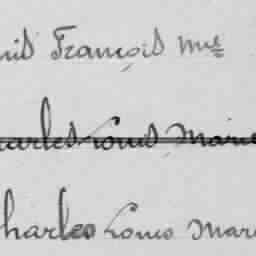 nis François Mie
harles Louis Marie
Charles Louis Mar